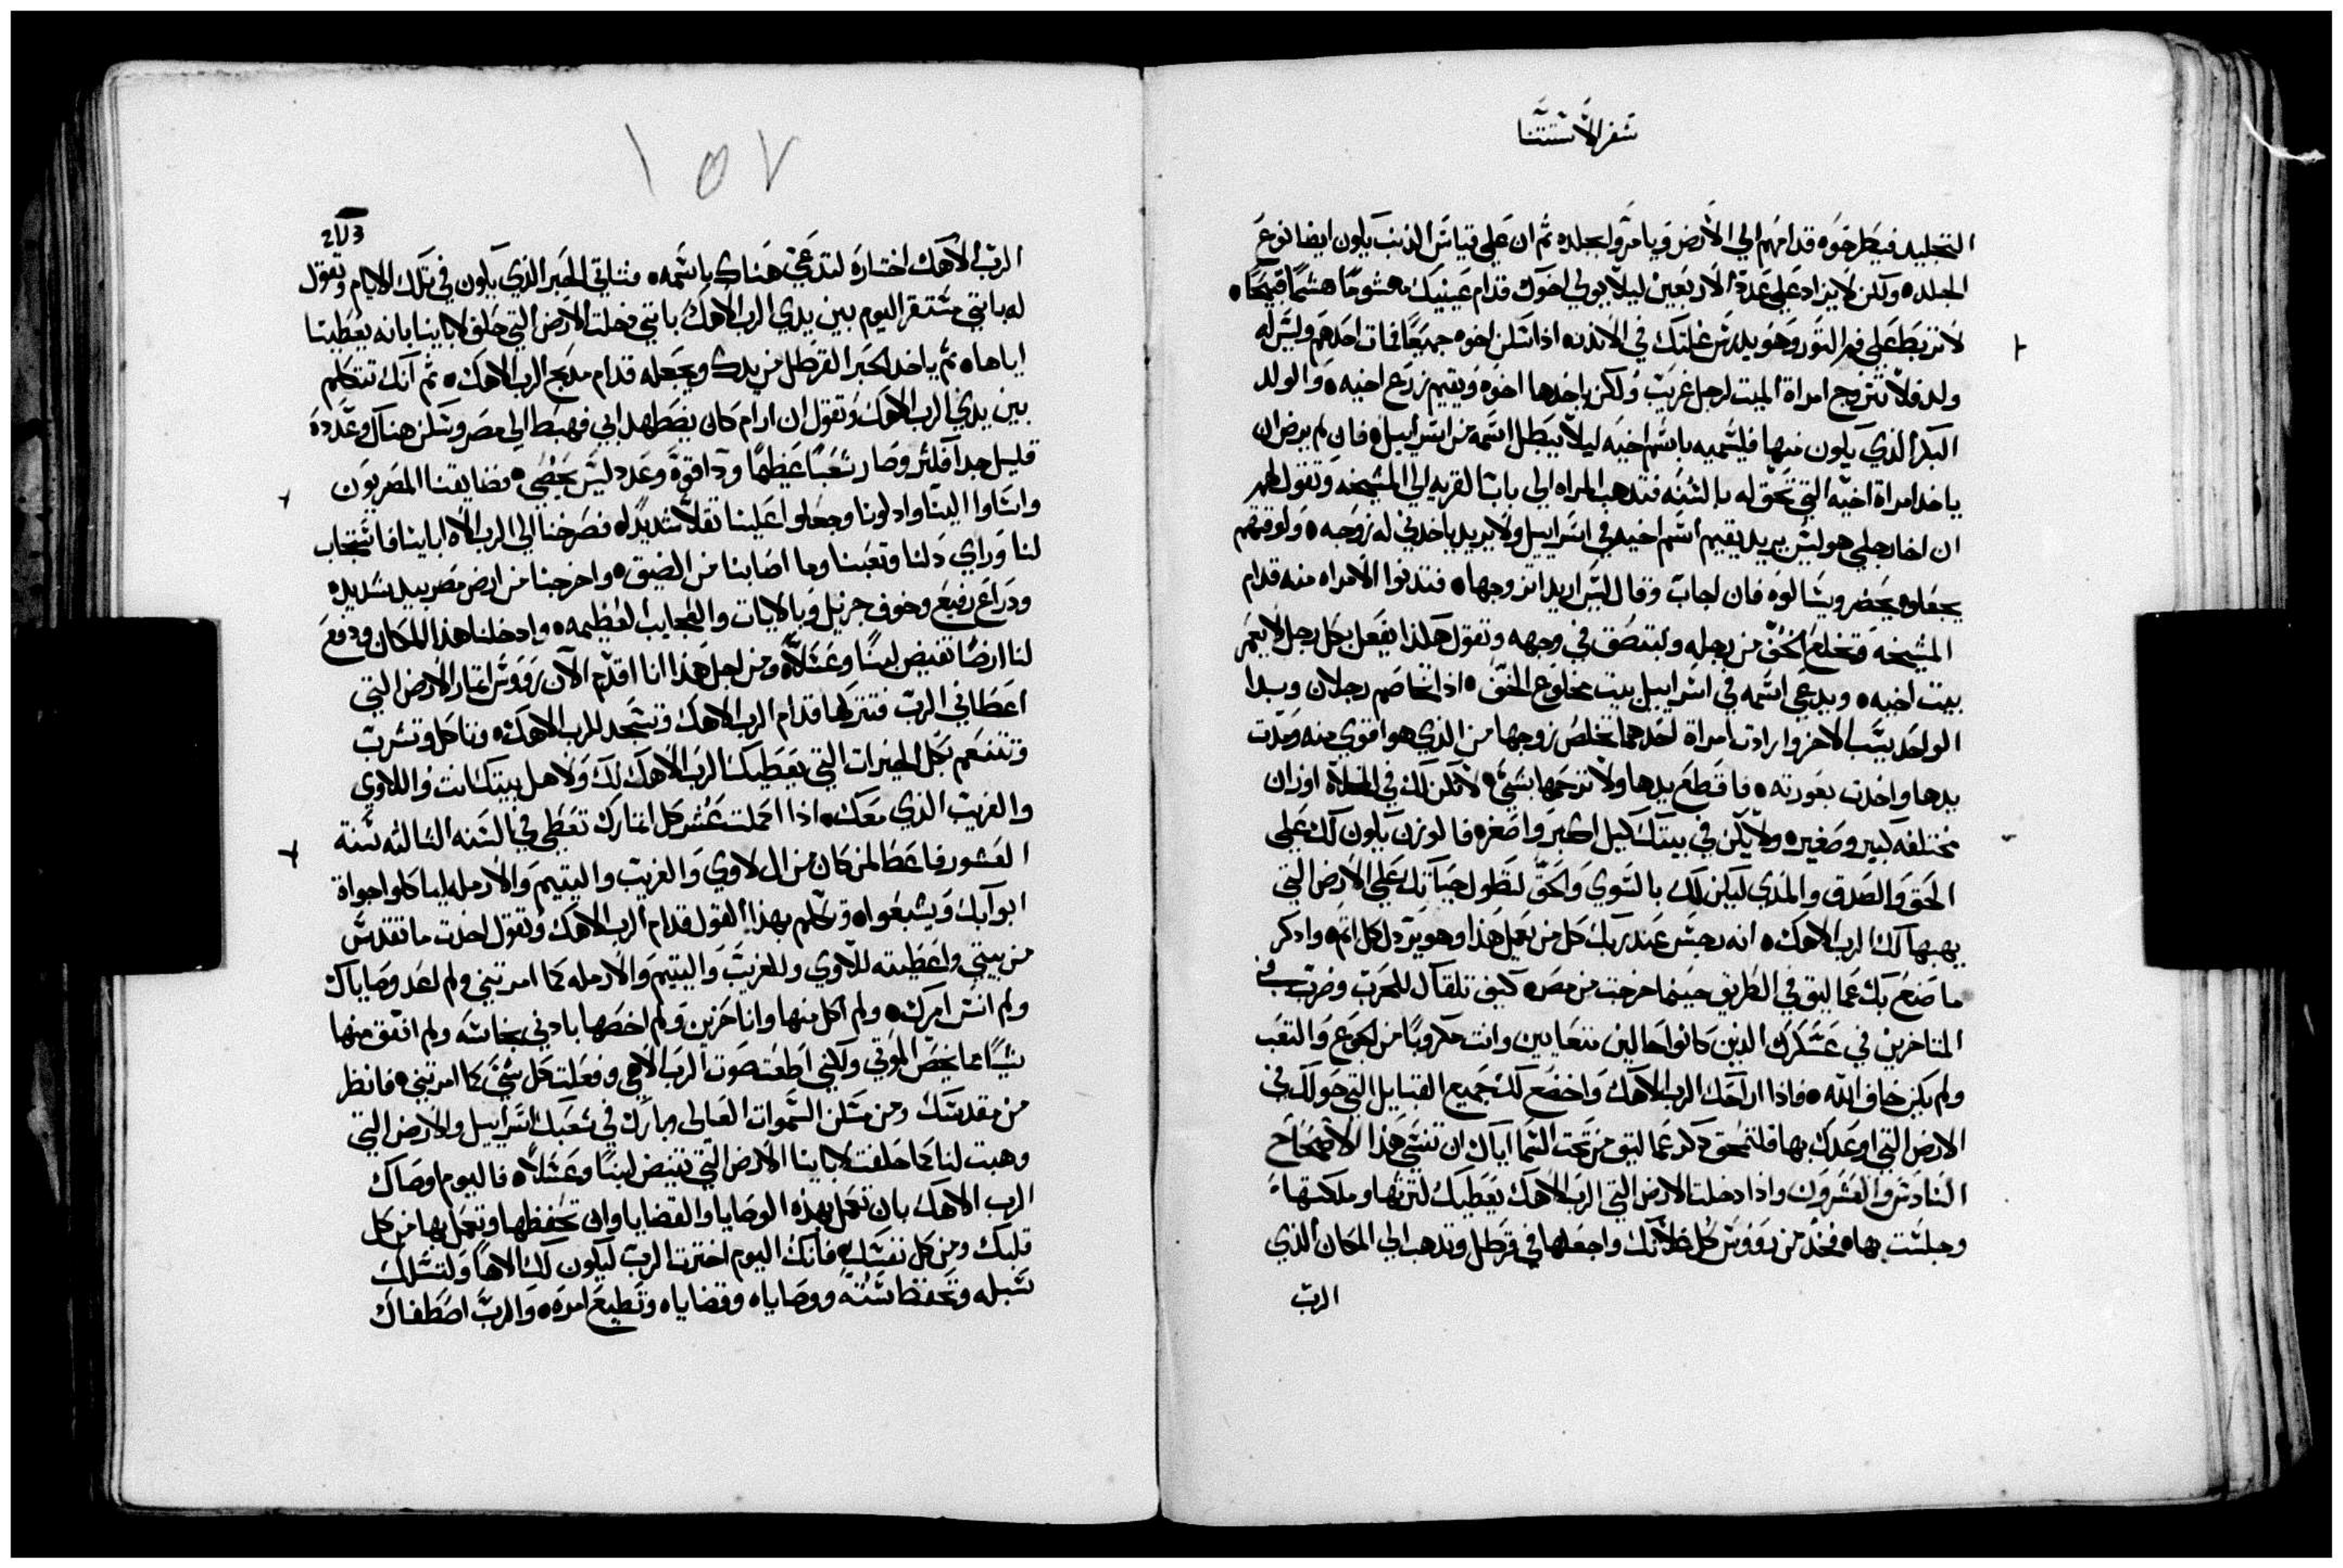 سفر الاستتنا
التجليد فيطرحوه قدامهم الي الارض ويامروا بجلده ثم ان علي قياس الذنب يكون ايضا نوع
الجلده ولكن لا يزاد علي عدة الاربعين ليلا يولي اخوك قدام عينيك مهشومًا هشمًا قبيحًا
لا تربط علي فم الثور وهو يدرس غلتك في الاندنه اذا سكن اخوه جميعًا فمات احدهم وليس له
ولد فلا تتزوج امراة الميت لرجل غريب ولكن ياخدها اخوه ويقيم زرع اخيه والولد
البكر الذي يكون منها فليسميه باسم اخيه ليلا يبطل اسمه من اسراييل فان لم يرض ان
ياخد امراة اخيه التي تحق له بالسنه فتدهب المراه الي باب القريه الي المشيخه وتقول لهم
ان اخا رجلي هو ليس يريد يقيم اسم اخيه في اسراييل ولا يريد ياخدني له زوجه ولوقتهم
يجعلوه يحضر ويسالوه فان اجاب وقال ليس اريد اتزوجها فتدنوا الامراه منه قدام
المشيخه وتخلع الخف من رجله وتبتصق في وجهه وتقول هكدا يفعل بكل رجل لا يعمر
بيت اخيه ويدعي اسمه في اسراييل بيت مخلوع الخف اذا تخاصم رجلان وبدا
الواحد يسب الاخر وارادت امراة احدهما تخلص زوجها من الذي هو اقوي منه ومدت
يدها واخدت بعورته فاقطع يدها ولا ترحمها بشي لا تكن لك في الخلاة اوزان
مختلفه كبير وصغيره ولا يكن في بيتك كيل اكبر واصغره فالوزن يكون لك علي
الحق والصدق والمدي ليكن لك بالسوي والحق لتطول حياتك علي الارض التي
يهبها لك الرب الاهك انه رجس عند ربك كل من يعمل هذا وهو يردل كل اتم وادكر
ما صنع بك عماليق في الطريق حينما خرجت من مصر كيف تلقاك للحرب وضرب في
المتاخرين في عسكرك الذين كانوا جالين متعابين وانت مكروبًا من الجوع والتعب
ولم يكن خاف الله فاذا اراحك الرب الاهك واخضع لك جميع القبايل التي حولك في
الارض التي اوعدك بها فلتمحق دكر عماليق من تحت السما اياك ان تنسي هذا الاصحاح
السادس والعشرون واذا دخلت الارض التي الرب الاهك يعطيك لترثها وملكتها
وجلست بها فخد من رووس كل غلاتك واجعلها في قرطل وتدهب الي المكان الذي
الرب
١٥٧
الرب الاهك اختاره لتدعي هناك باسمه فتاتي الحبر الذي يكون في تلك الايام وتقول
له باني متقر اليوم بين يدي الرب الاهك باني دخلت الارض التي حلف لاباينا بانه يعطينا
اياها ثم ياخد الحبر القرطل من يدك ويجعله قدام مدبح الرب الاهك ثم انك تتكلم
بين يدي الرب الاهك وتقول ان ارام كان يضطهد ابي فهبط الي مصر وسكن هناك وعدده
قليل جدا فكتر وصار شعبًا عظيمًا ودا قوة وعدد ليس يحصي فضايقنا المصريون
واساوا الينا وادلونا وجعلوا علينا ثقلا شديدًا فصرخنا الي الرب الاه اباينا فاستجاب
لنا وراي دلنا وتعبنا وما اصابنا من الضيق واخرجنا من ارض مصر بيد شديده
ودراع رفيع وخوف جزيل وبالايات والعجايب العظيمه وادخلنا هذا المكان ودفع
لنا ارضًا تفيض لبنًا وعسلًا ومن اجل هذا انا اقدم الان رووس اتمار الارض التي
اعطاني الرب فتتركها قدام الرب الاهك وتسجد للرب الاهك وتاكل وتشرب
وتتنعم بكل الخيرات التي يعطيك الرب الاهك لك ولاهل بيتك انت واللاوي
والغريب الذي معك اذا اكملت عشر كل اتمارك تعطي في السنه التالته سنة
العشور فاعطا لمن كان من ال لاوي والغريب واليتيم والارمله لياكلوا جواة
ابوابك ويشبعوا وتكلم بهذا القول قدام الرب الاهك وتقول اخدت ما تقدس
من بيتي واعطيته للاوي وللغريب واليتيم والارمله كما امرتني ولم اعد وصاياك
ولم انس امرك ولم اكل منها وانا حزين ولم اخصها بادني نجاسه ولم انفق منها
شيًا مما يخص الموتي ولكني اطعت صوت الرب الاهي وفعلت كل شي كما امرتني فانظر
من مقدسك ومن مسكن السموات العالي وبارك في شعبك اسراييل والارض التي
وهبت لنا كما حلفت لاباينا الارض التي تفيض لبنًا وعسلًا فاليوم اوصاك
الرب الاهك بان تعمل بهذه الوصايا والقضايا وان تحفظها وتعمل بها من كل
قلبك ومن كل نفسك فانك اليوم اخترت الرب ليكون لك الاهًا ولتسلك
سبله وتحفظ سننه ووصاياه وقضاياه وتطيع امره والرب اصطفاك